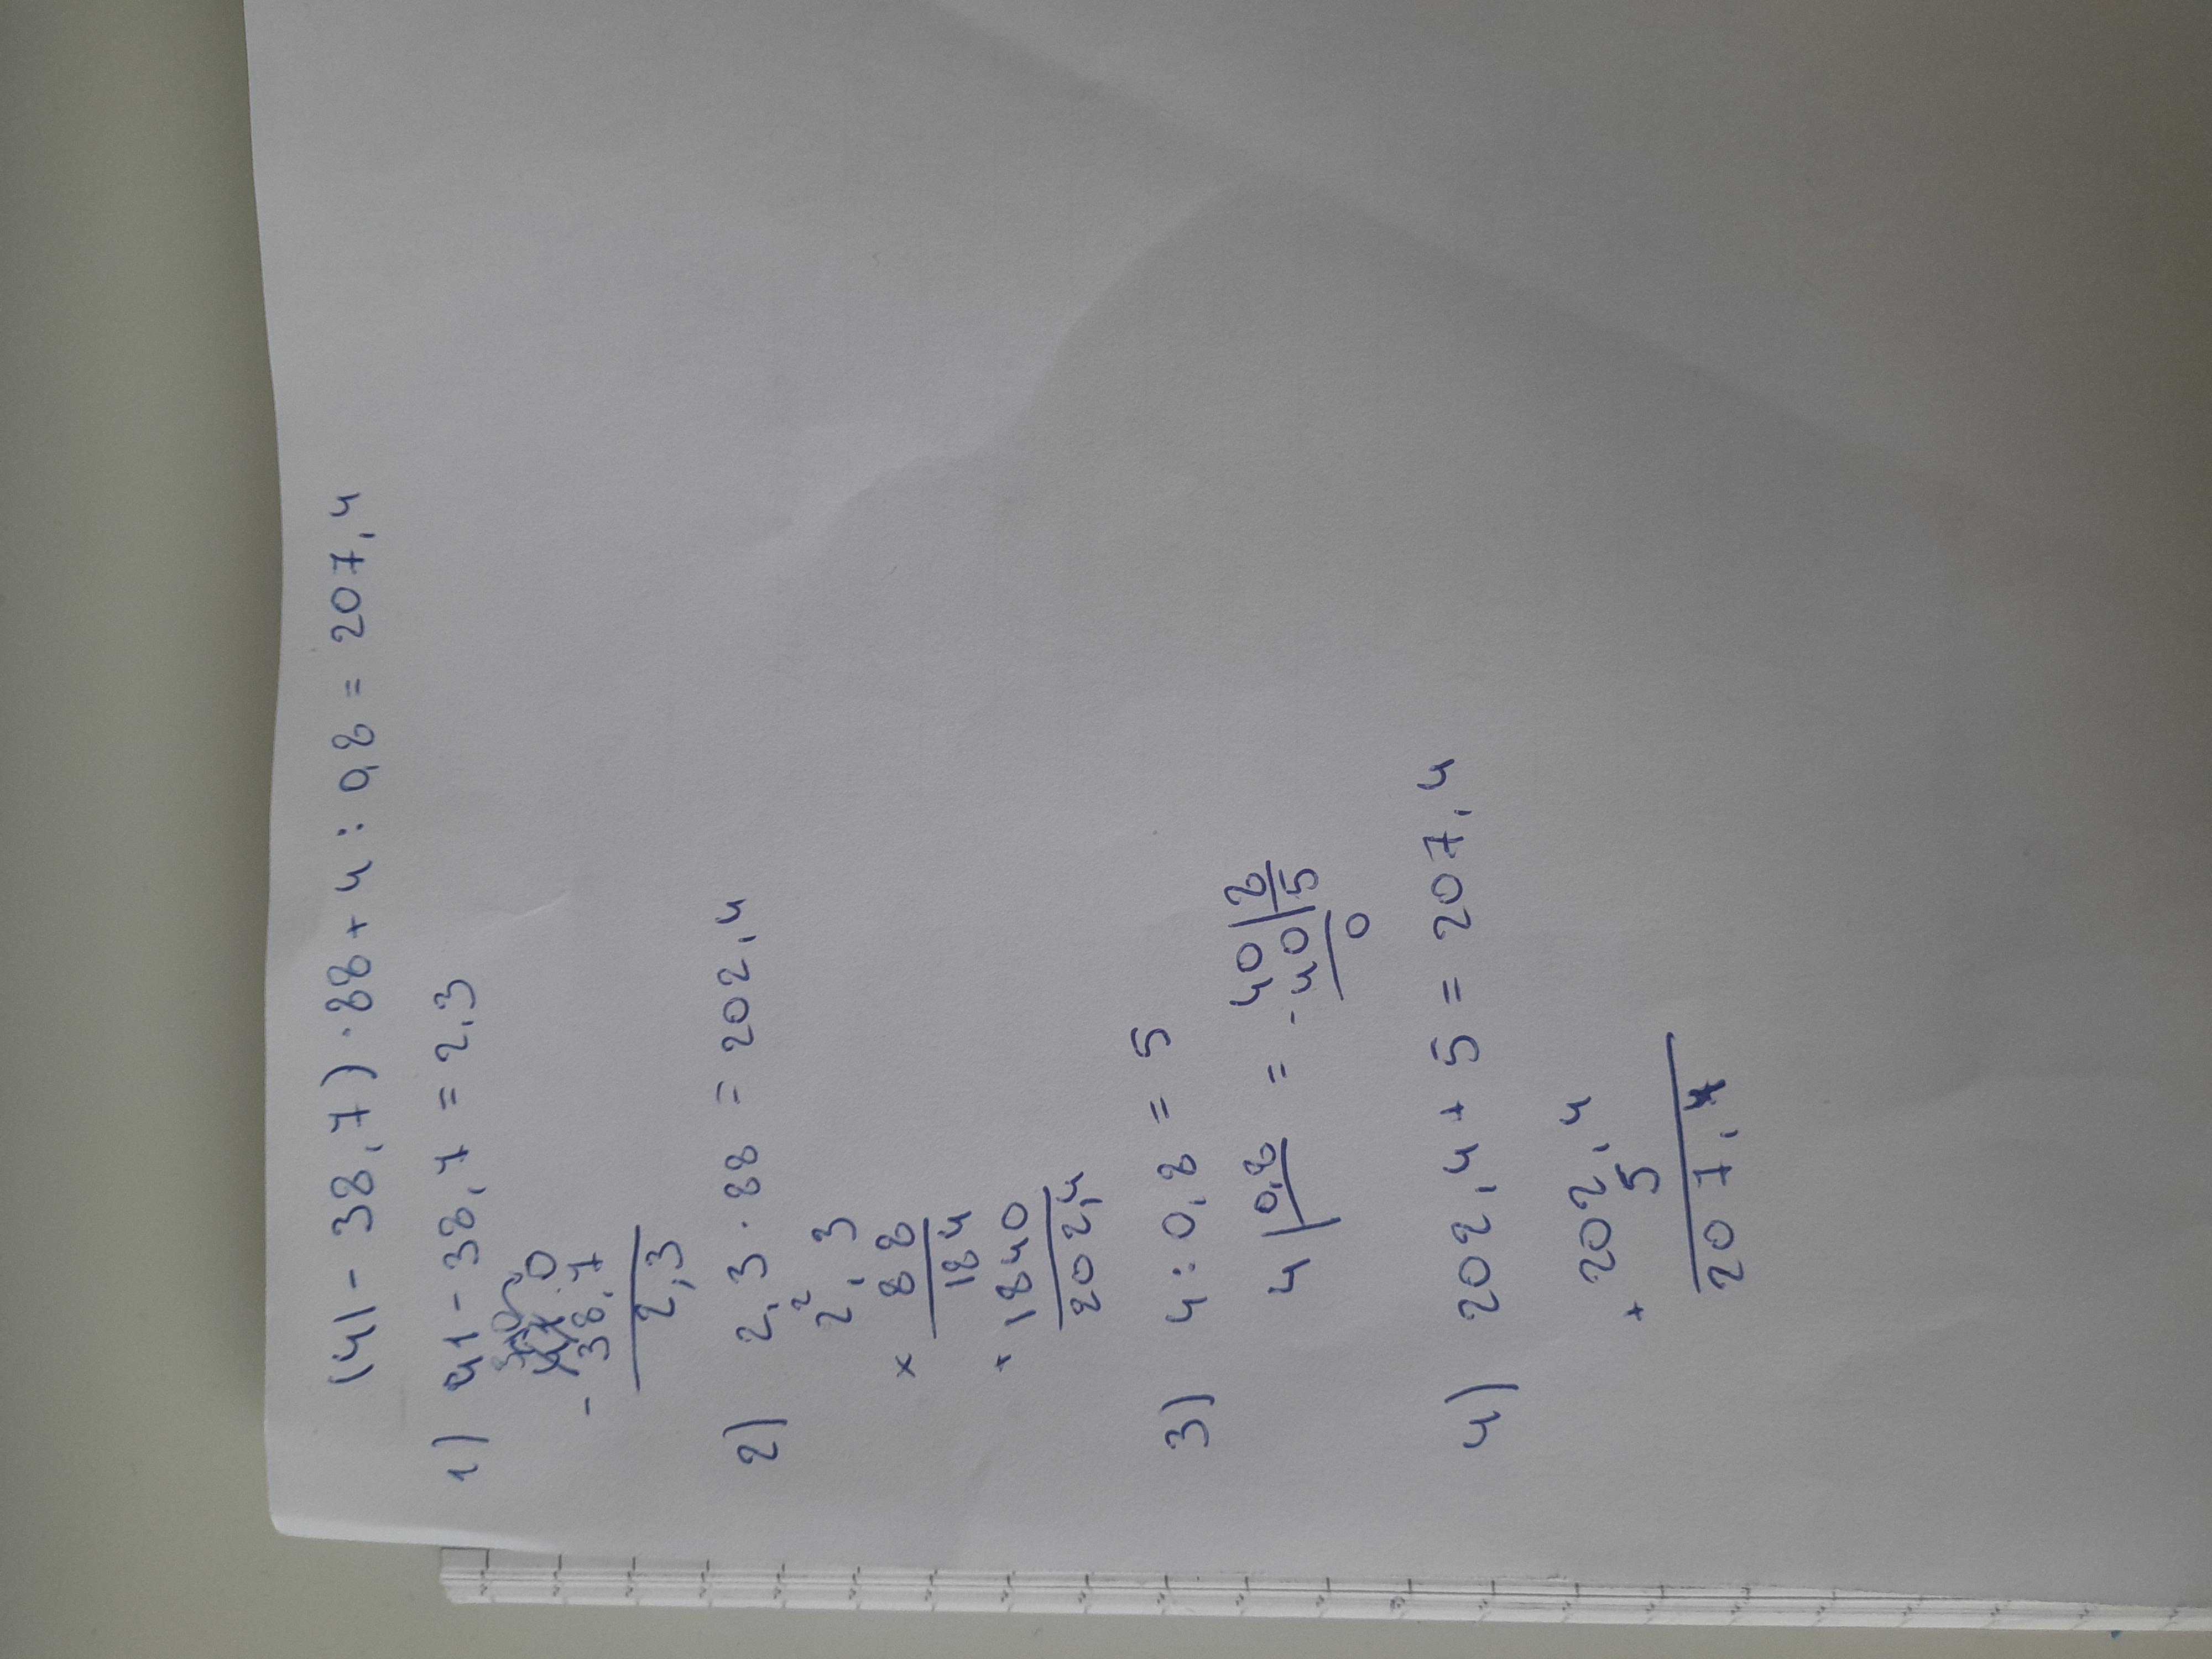 (41 - 38,7) · 88 + 4 : 0,8 = 207,4
1) 41 - 38,7 = 2,3
0
- 38,7
2,3
2) 2,3 · 88 = 202,4
2
2,3
× 88
184
+ 1840
202,4
3) 4 : 0,8 = 5
4 | 0,8 = 40 | 8
- 40 | 5
0
4) 202,4 + 5 = 207,4
202,4
+ 5
207,4